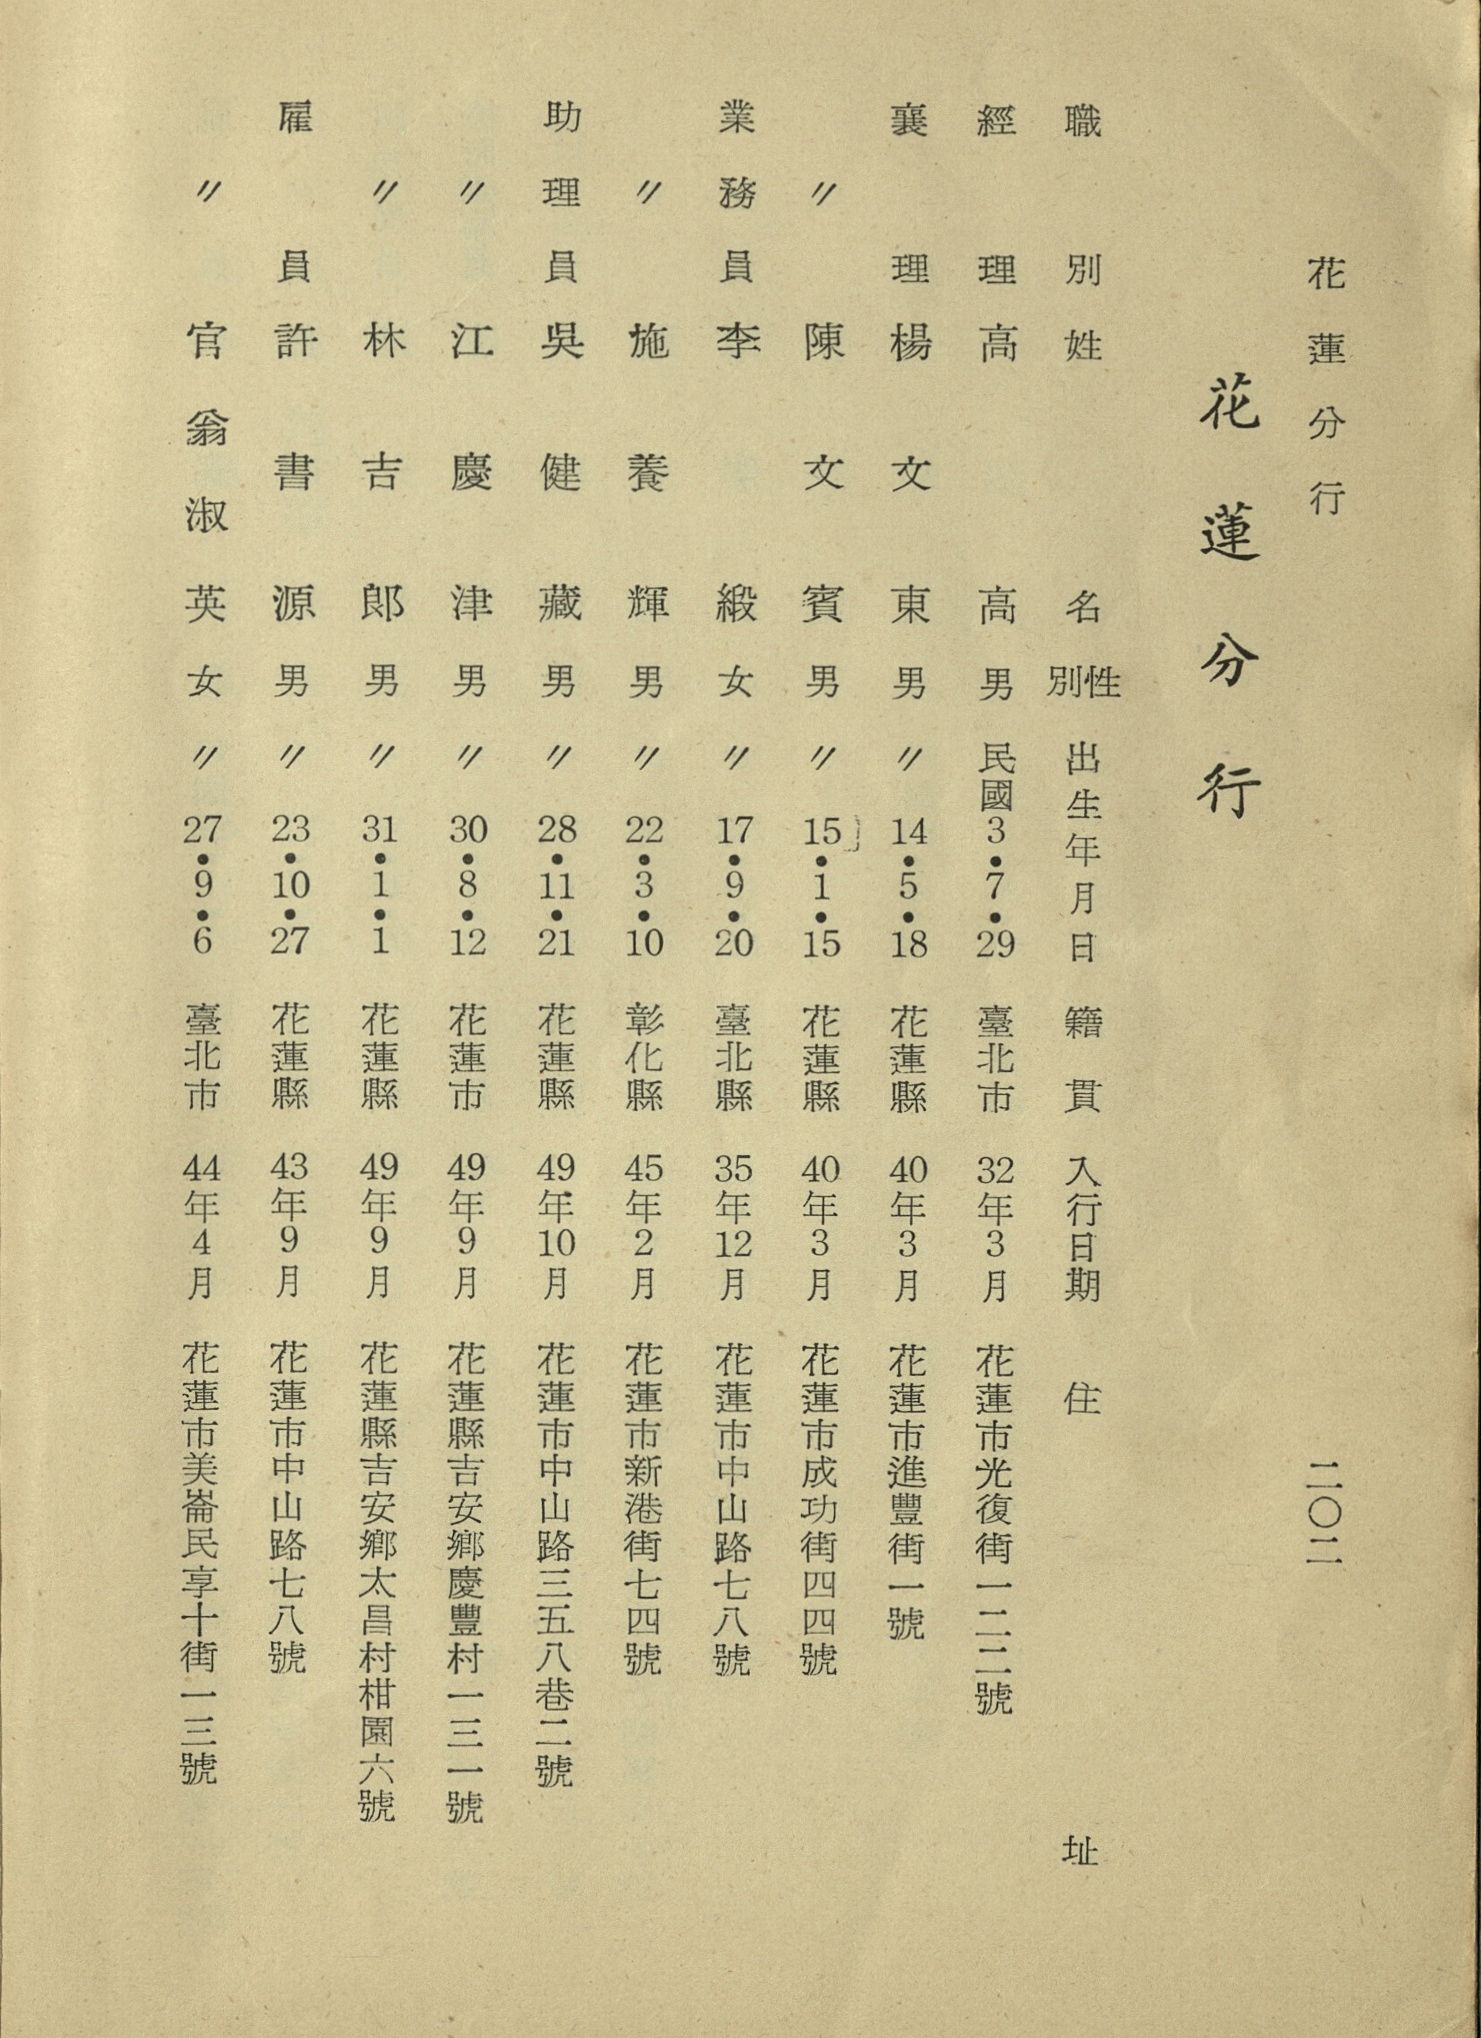 花蓮分行
二〇二
花蓮分行
職別 姓名 性別 出生年月日 籍貫 入行日期 住址
經理 高高 男 民國3•7•29 臺北市 32年3月 花蓮市光復街一二二號
襄理 楊文東 男 〃14•5•18 花蓮縣 40年3月 花蓮市進豐街一號
〃 陳文賓 男 〃15•1•15 花蓮縣 40年3月 花蓮市成功街四四號
業務員 李緞 女 〃17•9•20 臺北縣 35年12月 花蓮市中山路七八號
〃 施養輝 男 〃22•3•10 彰化縣 45年2月 花蓮市新港街七四號
助理員 吳健藏 男 〃28•11•21 花蓮縣 49年10月 花蓮市中山路三五八巷二號
〃 江慶津 男 〃30•8•12 花蓮市 49年9月 花蓮縣吉安鄉慶豐村一三一號
〃 林吉郎 男 〃31•1•1 花蓮縣 49年9月 花蓮縣吉安鄉太昌村柑園六號
雇員 許書源 男 〃23•10•27 花蓮縣 43年9月 花蓮市中山路七八號
〃 官翁淑英 女 〃27•9•6 臺北市 44年4月 花蓮市美崙民享十街一三號